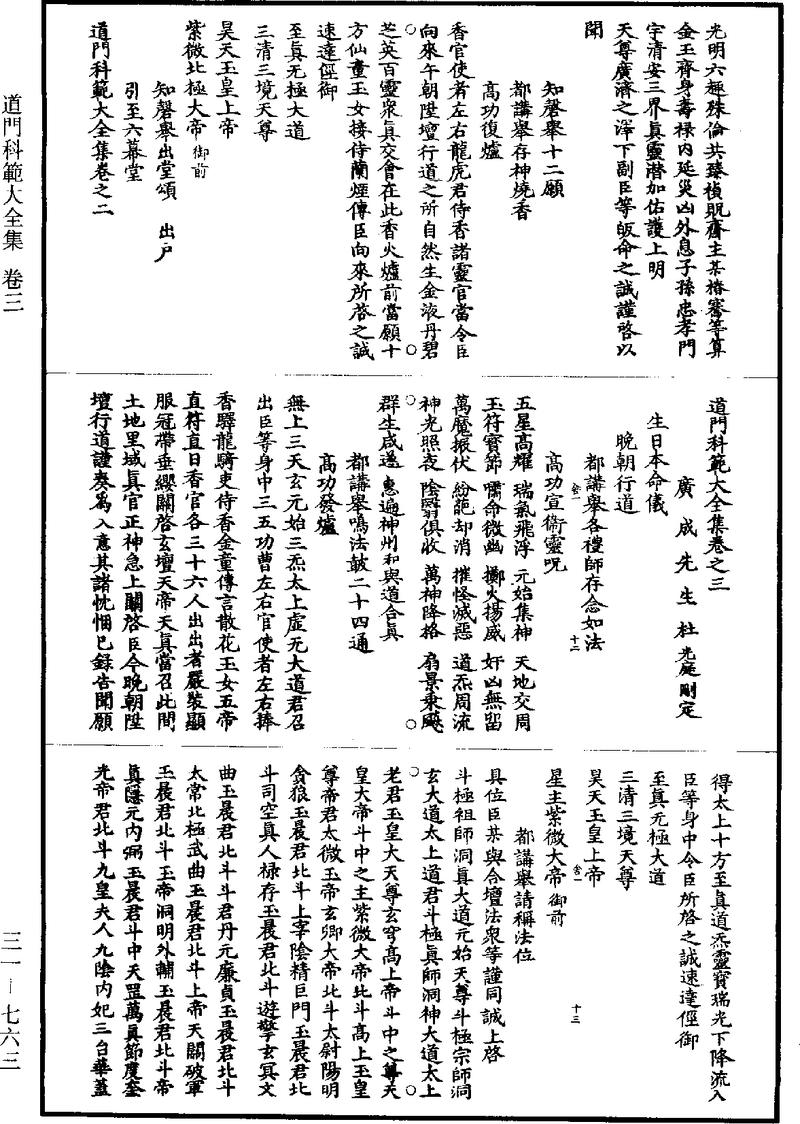 光明六趣殊倫共臻禎貺齋主某椿審等算
金玉齊身壽祿内延災凶外息子孫忠孝門
宇清安三界真靈潛加佑護上明
天尊廣濟之澤下副臣等皈命之誠謹啓以
聞
知磬舉十二願
都講舉存神燒香
高功復爐
香官使者左右龍虎君侍香諸靈官當令臣
向來午朝陞壇行道之所自然生金液丹碧
芝英百靈衆真交會在此香火爐前當願十
方仙童玉女接侍蘭煙傳臣向來所啓之誠
速達徑御
至真无極大道
三清三境天尊
昊天玉皇上帝
紫微北極大帝 御前
知磬舉出堂頌 出戶
引至六幕堂
道門科範大全集卷之二
道門科範大全集卷之三
廣成先生杜光庭刪定
生日本命儀
晚朝行道
都講舉各禮師存念如法
高功宣衛靈呪
五星高耀 瑞氣飛浮 元始集神 天地交周
玉符寶節 嘯命微幽 擲火揚威 奸凶無留
萬魔振伏 紛葩却消 摧怪滅惡 道炁周流
神光照夜 陰翳俱收 萬神降格 扇景乘飈
群生咸遂 惠遍神州和與道合真
都講舉鳴法鼓二十四通
高功發爐
無上三天玄元始三炁太上虛无大道君召
出臣等身中三五功曹左右官使者左右捧
香驛龍騎吏侍香金童傳言散花玉女五帝
直符直日香官各三十六人出出者嚴裝顯
服冠帶垂纓關啓玄壇天帝天真當召此間
土地里域真官正神急上關啓臣今晚朝陞
壇行道謹奏為入意其諸忱悃已録告聞願
得太上十方至真道炁靈寶瑞光下降流入
臣等身中令臣所啓之誠速達徑御
至真无極大道
三清三境天尊
昊天玉皇上帝
星主紫微大帝 御前
都講舉請稱法位
具位臣某與合壇法衆等謹同誠上啓
斗極祖師洞真大道元始天尊斗極宗師洞
玄大道太上道君斗極真師洞神大道太上
老君玉皇大天尊玄穹高上帝斗中之尊天
皇大帝斗中之主紫微大帝北斗高上玉皇
尊帝君太微玉帝玄卿大帝北斗太尉陽明
貪狼玉晨君北斗上宰陰精巨門玉晨君北
斗司空真人祿存玉晨君北斗遊擊玄冥文
曲玉晨君北斗斗君丹元廉貞玉晨君北斗
太常北極武曲玉晨君北斗上帝天關破軍
玉晨君北斗玉帝洞明外輔玉晨君北斗帝
真隱元内弼玉晨君斗中天罡萬真節度奎
光帝君北斗九皇夫人九陰内妃三台華蓋
道門科範大全集 卷三
三一—七六三